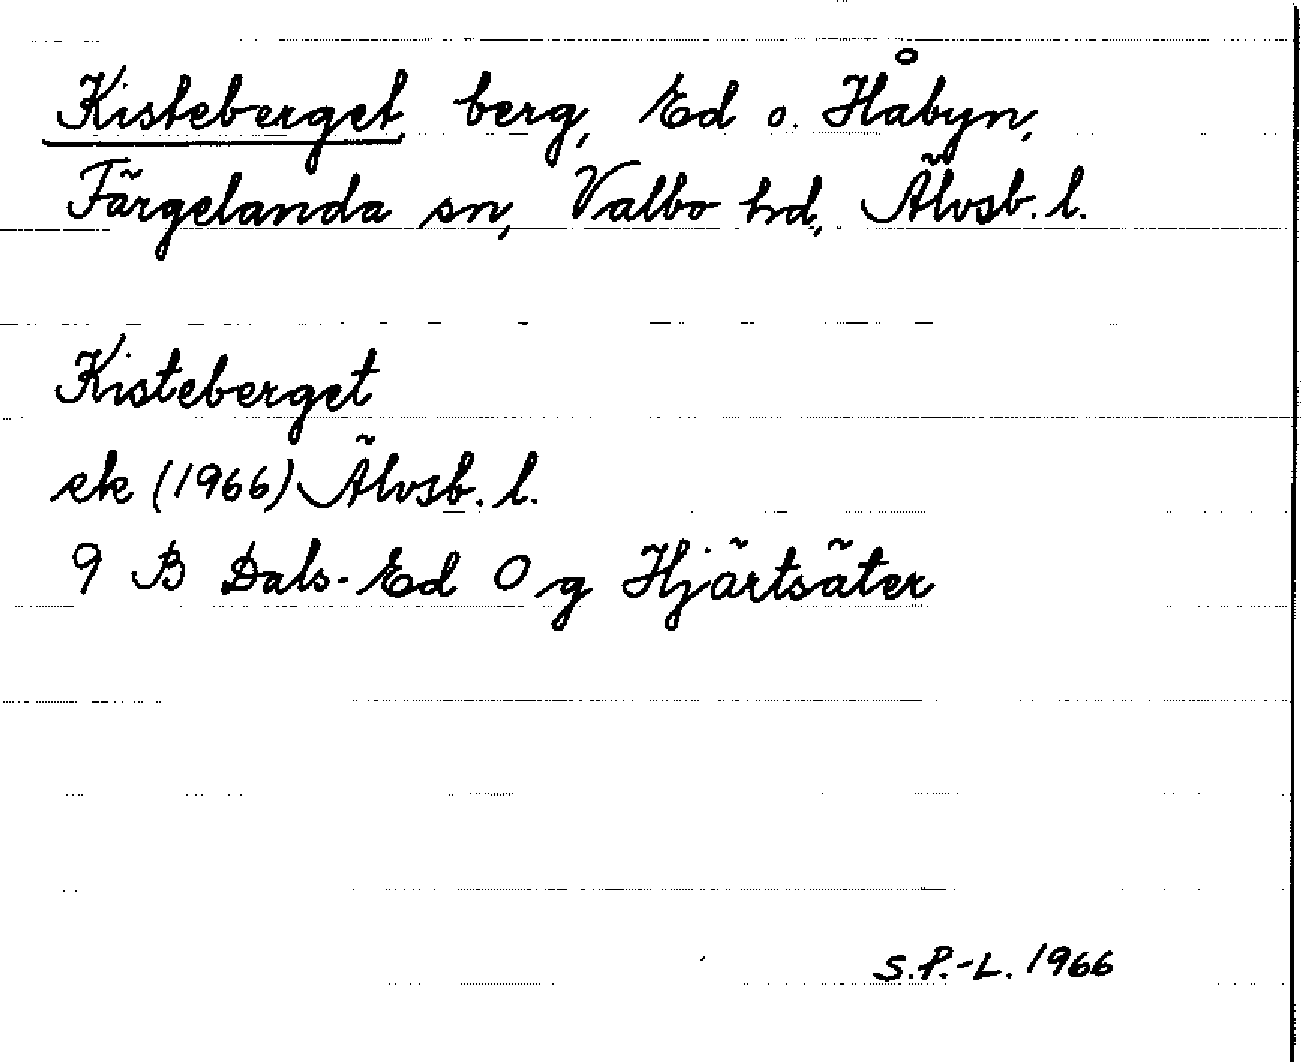 Kisteberget berg, Ed o. Håbyn,
Färgelanda sn, Valbo hd, Älvsb. l.
Kisteberget
ek (1966) Älvsb. l.
9 B Dals-Ed O g Hjärtsäter
S.P.-L. 1966